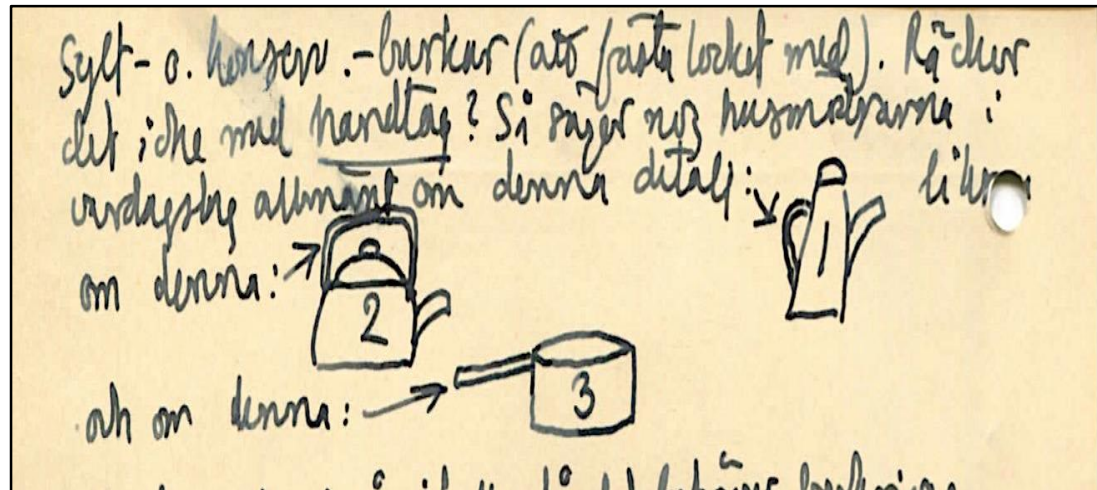 Sylt- o. konserv.-burkar (att fästa locket med). Räcker
det icke med handtag? Så säger nog husmödrarna i
vardagslag allmänt om denna detalj: 1
om denna: 2
och om denna: 3